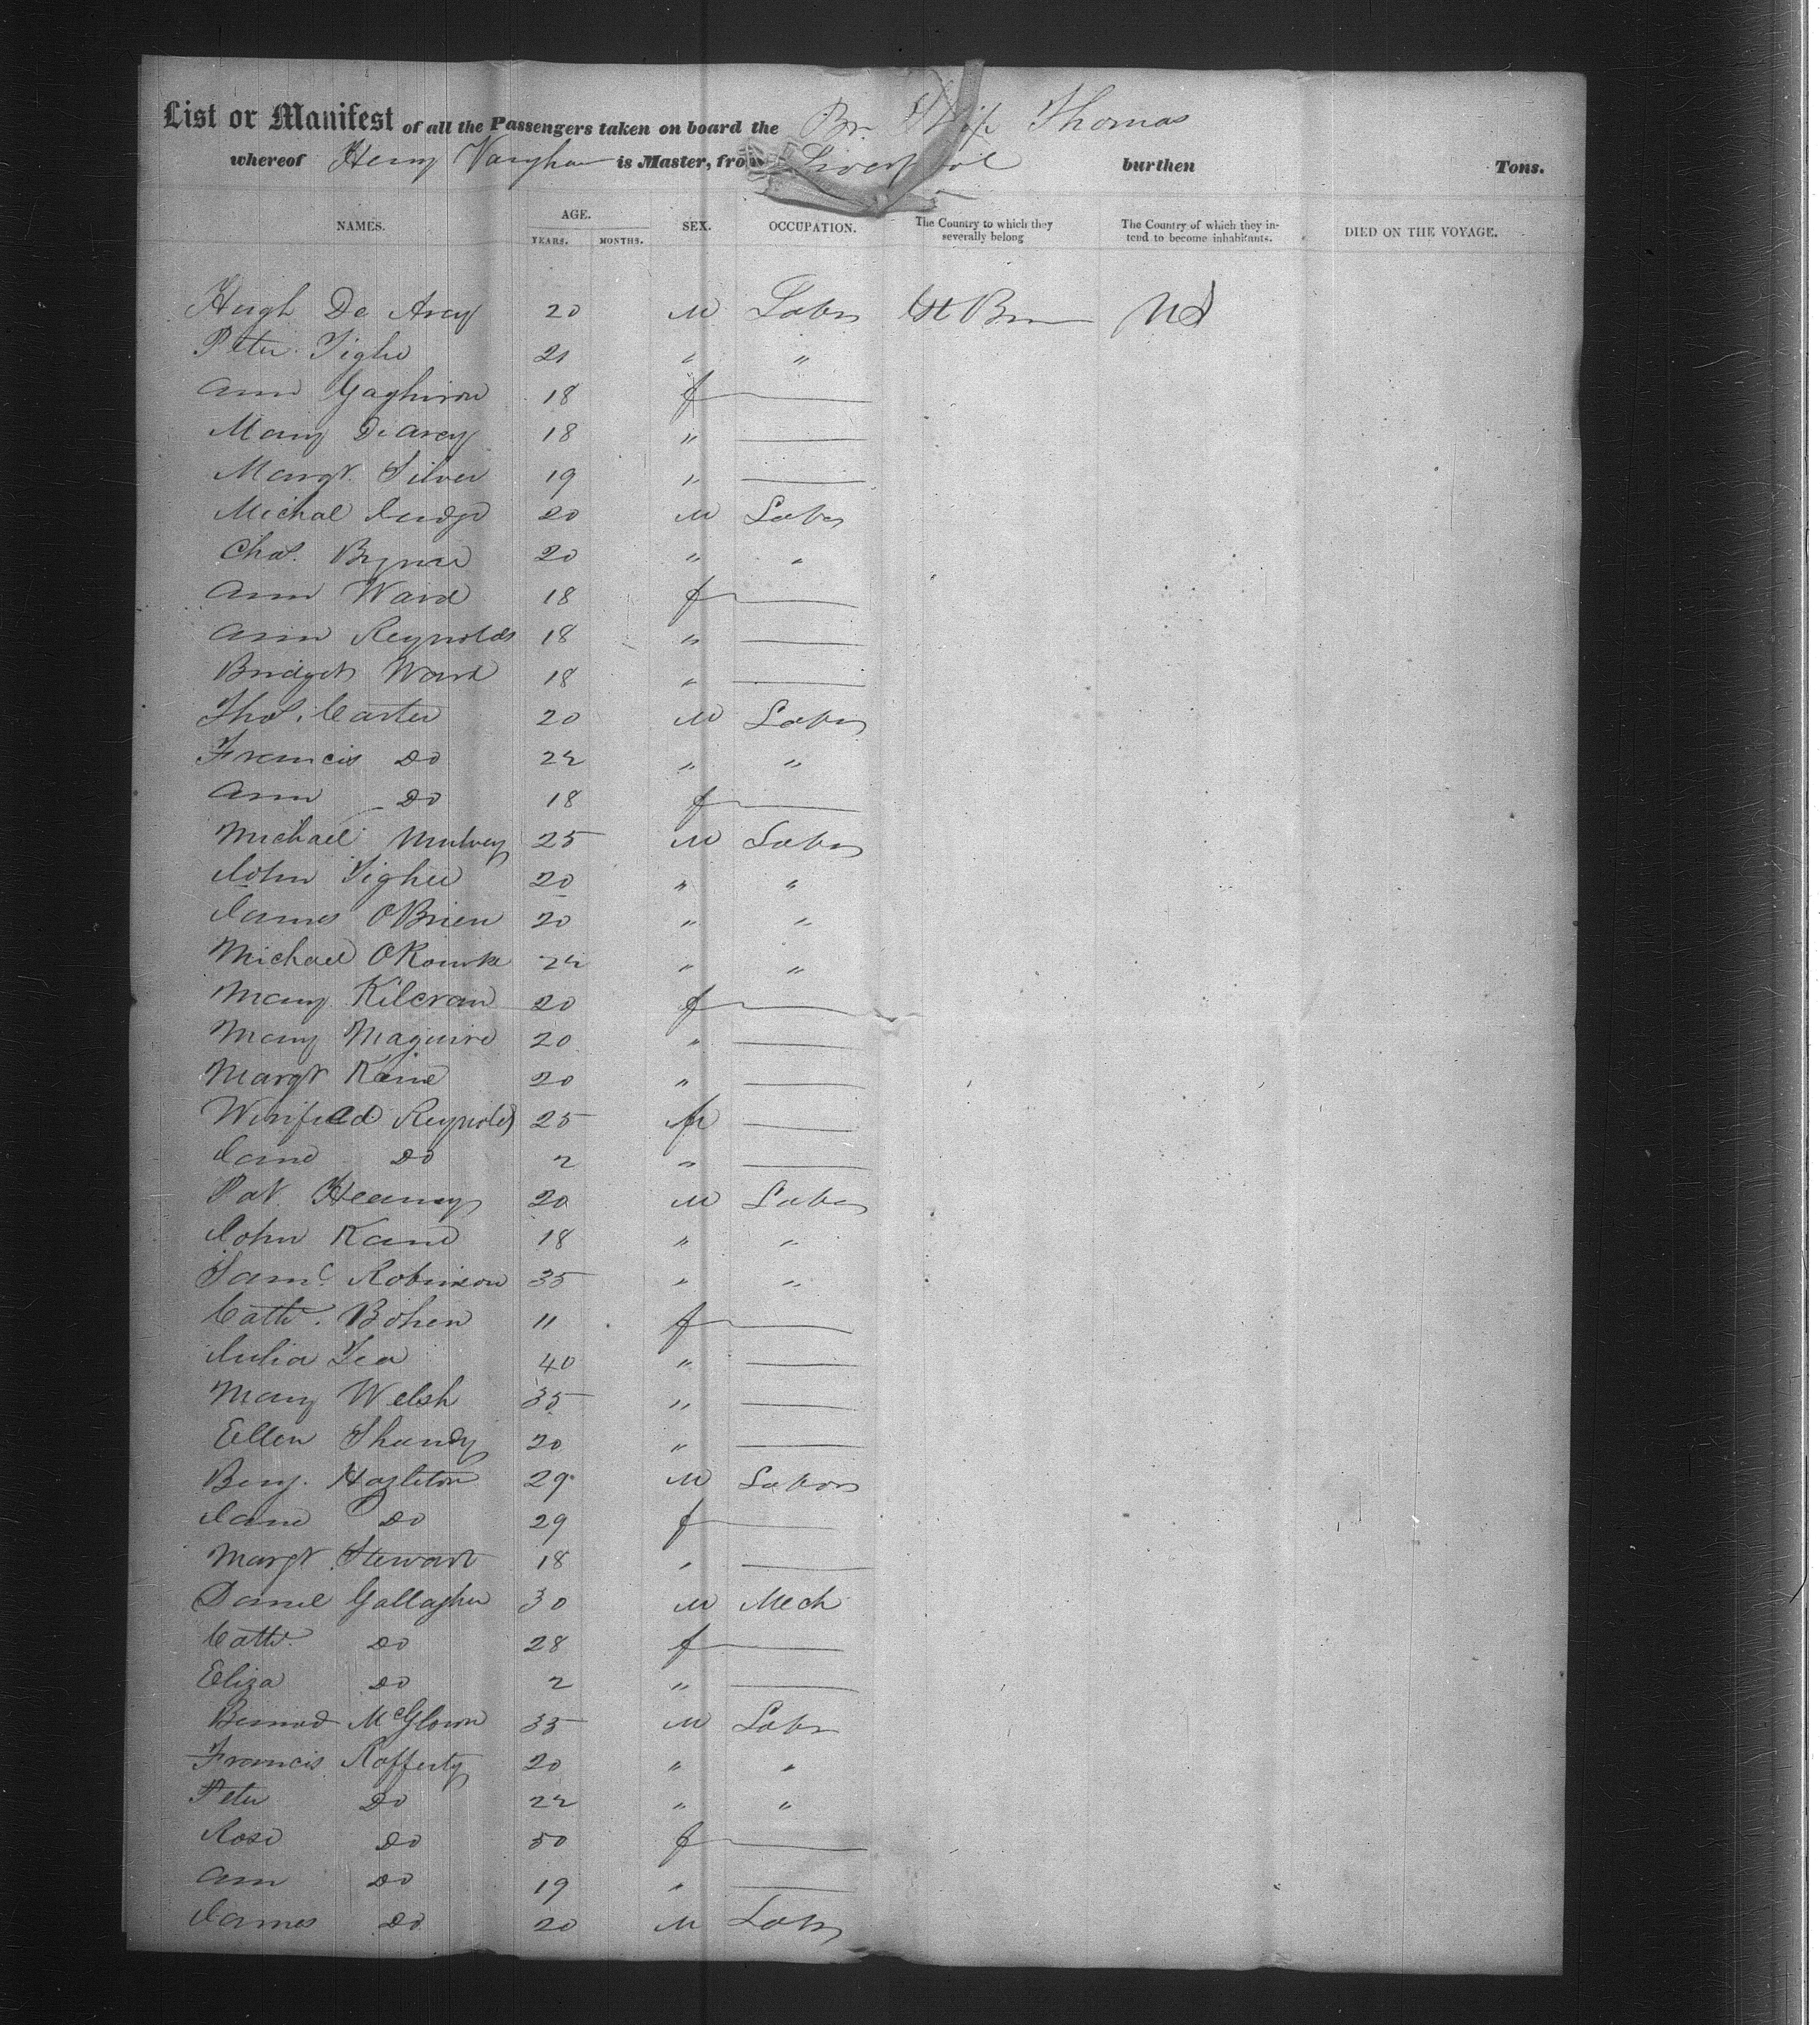 List or Manifest of all the Passengers taken on board the Br. Ship Thomas
whereof Henry Vaughan is Master, from Liverpool burthen Tons.
NAMES. AGE. YEARS. MONTHS. SEX. OCCUPATION. The Country to which they severally belong The Country of which they intend to become inhabitants. DIED ON THE VOYAGE.
Hugh De Arcy 20 M Labr Gt Brn US
Peter Tighe 21 " "
Ann 18 f —
Mary DeArcy 18 " —
Margt. Silver 19 " —
Michal Judge 20 M Labr
Chas. Byrne 20 " "
Ann Ward 18 f —
Ann Reynolds 18 " —
Bridget Ward 18 " —
Thos. Carter 20 M Labr
Francis Do 22 " "
Ann Do 18 f —
Michael Mulvey 25 M Labr
John Tighe 20 " "
James OBrien 20 " "
Michael ORourke 22 " "
Mary Kilcran 20 f —
Mary Maguire 20 " —
Margt Kane 20 " —
Winifred Reynolds 25 f —
Jane Do 2 " —
Pat Heaney 20 M Labr
John Kane 18 " "
Saml. Robinson 35 " "
Cathe. Bohen 11 f —
Julia Lea 40 " —
Mary Welsh 35 " —
Ellen Shundy 20 " —
Benj. Hazleton 29 M Labor
Jane Do 29 f —
Margt Stewart 18 " —
Daniel Gallagher 30 M Mech
Cathe. Do 28 f —
Eliza Do 2 " —
Bernard McGlown 35 M Labr
Francis Rafferty 20 " "
Peter Do 22 " "
Rose Do 50 f —
Ann Do 19 " —
James Do 20 M Labr